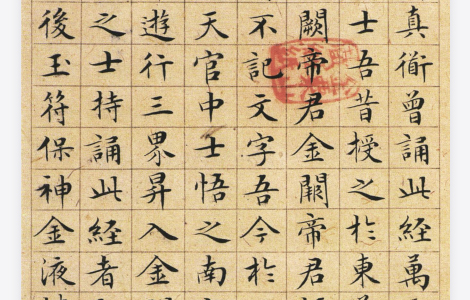 真衜曾誦此經萬
士吾昔授之於東
闕帝君金闕帝君
不記文字吾今於
天官中士悟之南
遊行三界昇入金
之士持誦此經者
後玉符保神金液